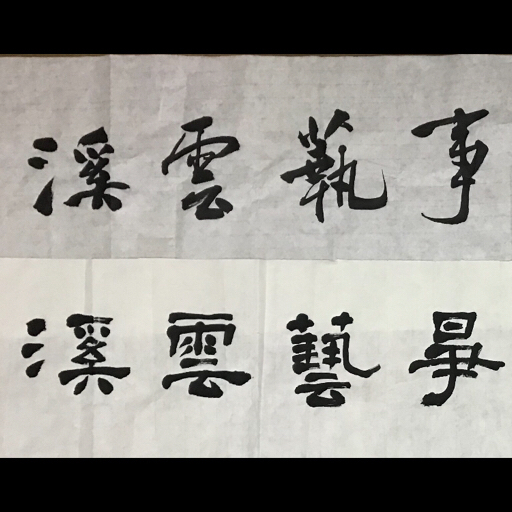 溪雲蓺事
溪雲藝事